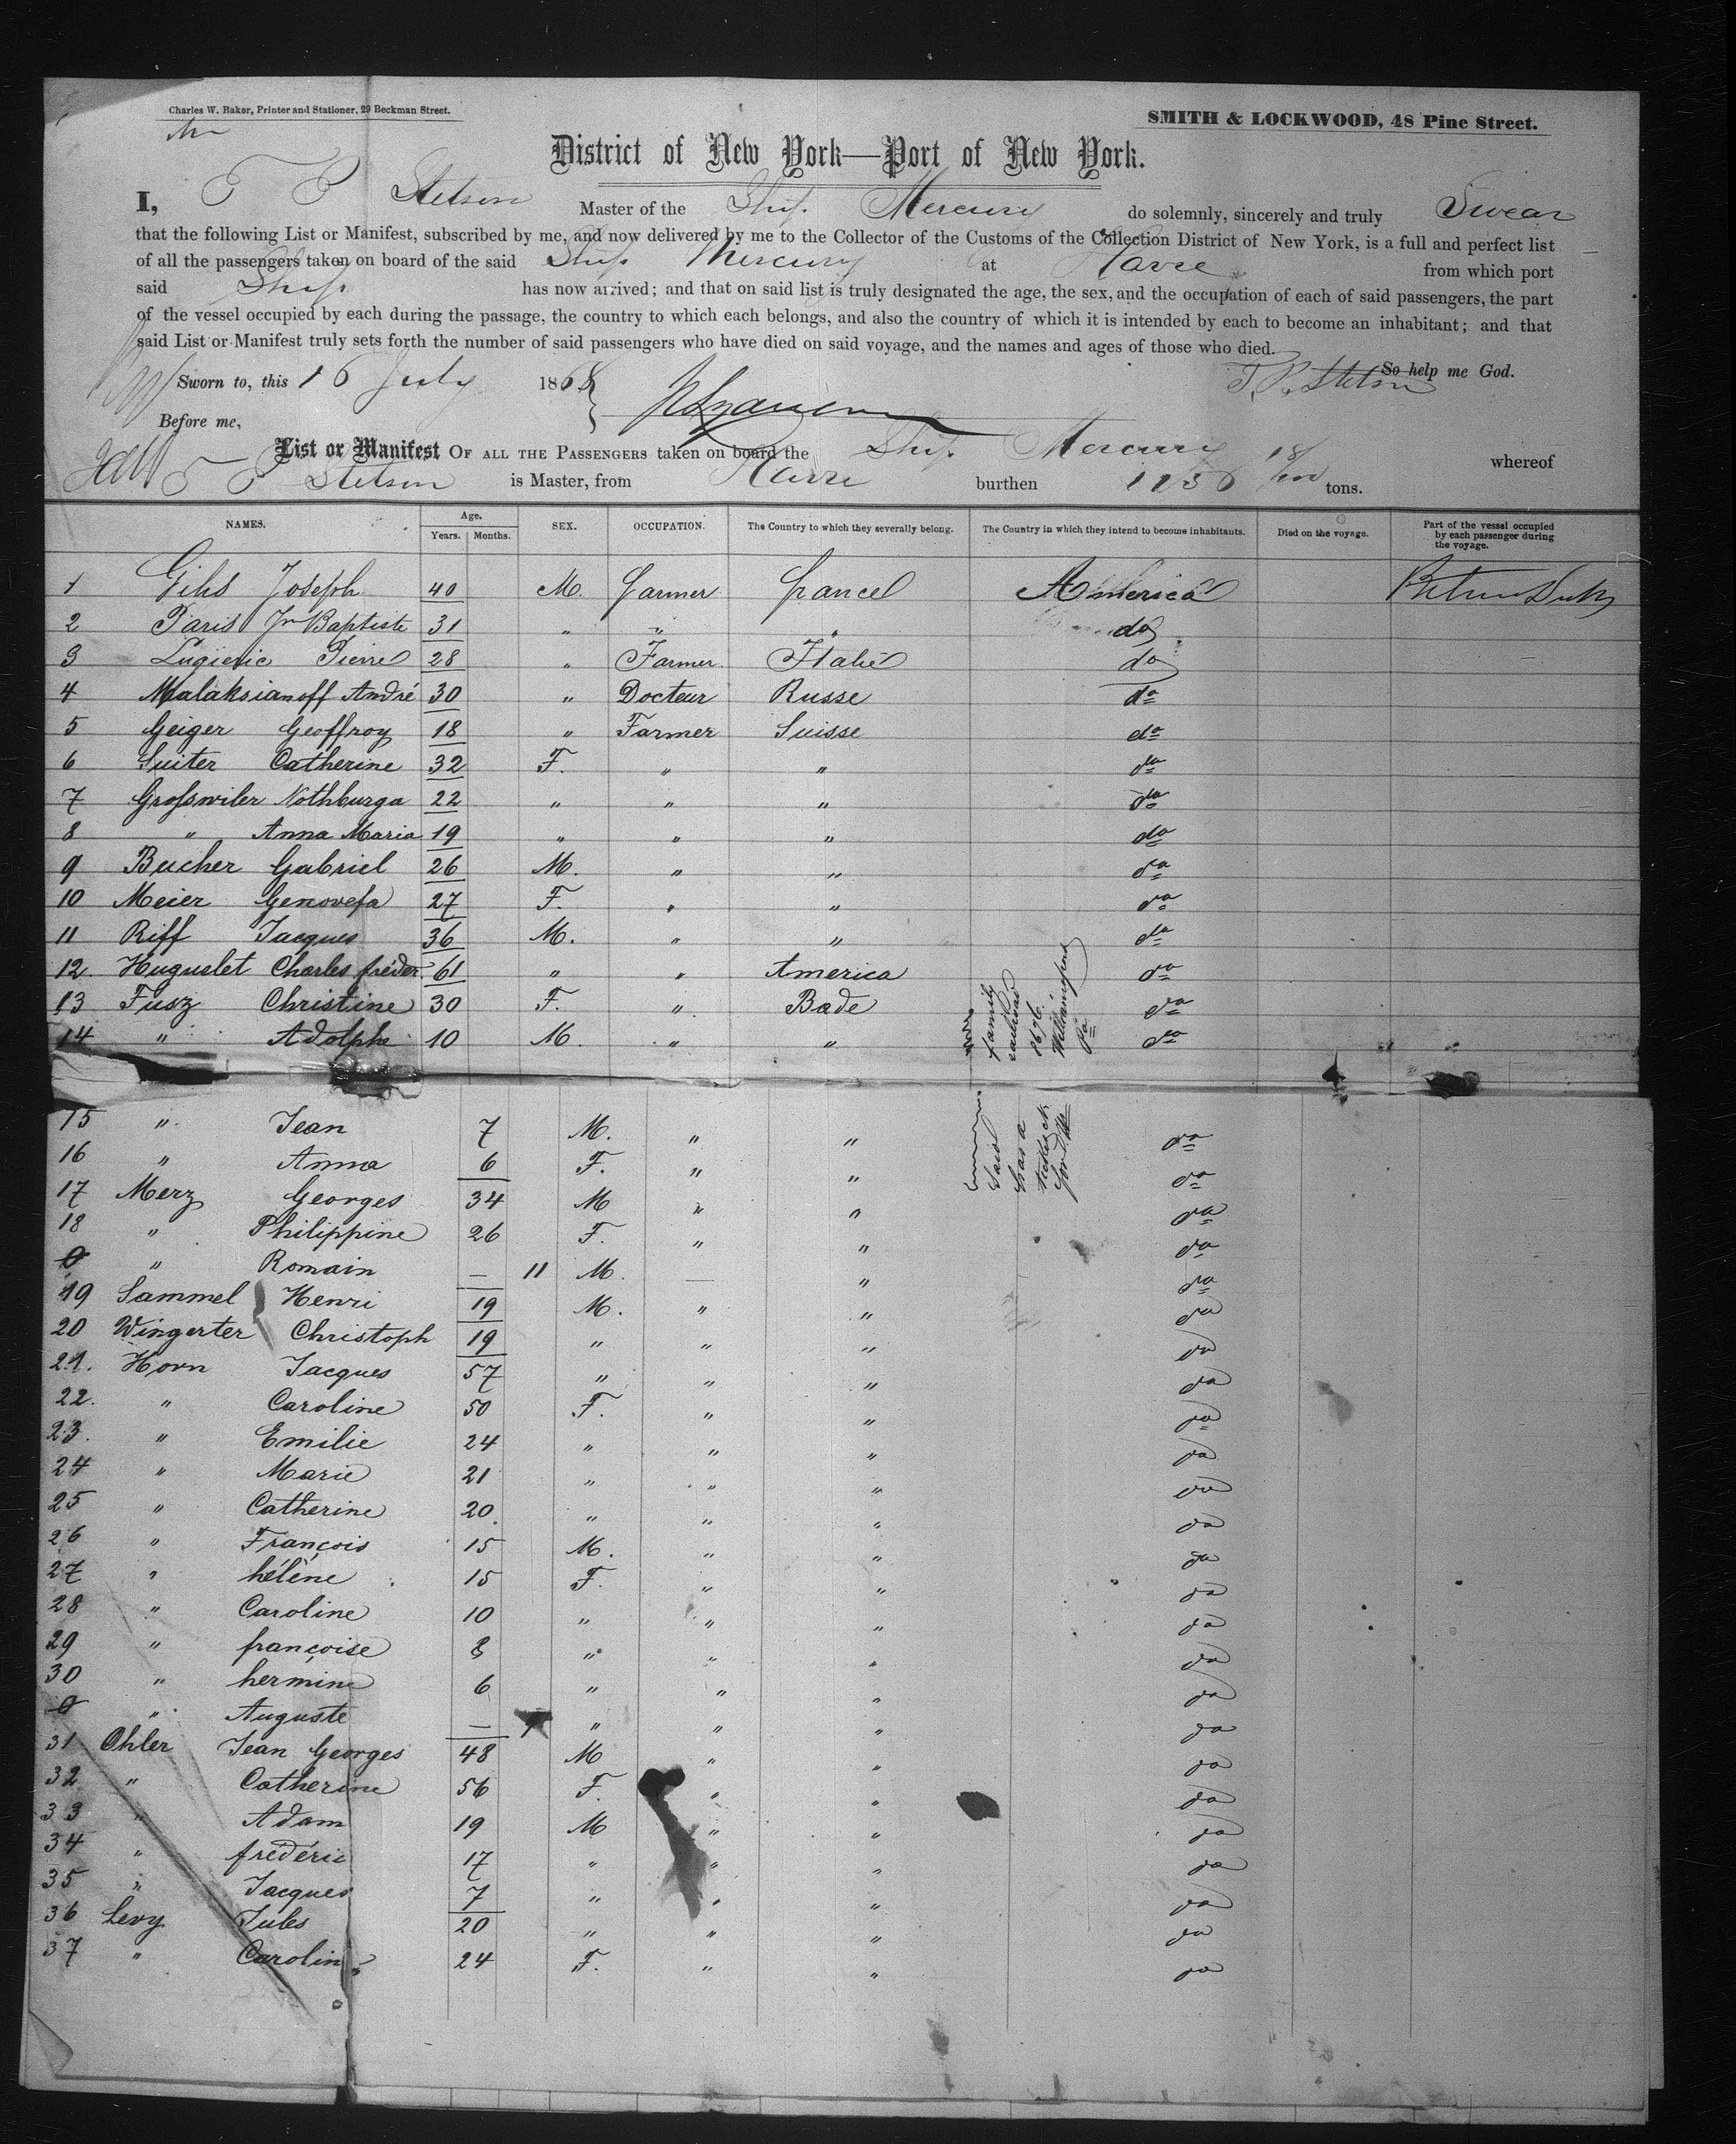 Charles W. Baker, Printer and Stationer, 29 Beekman Street.
SMITH & LOCKWOOD, 48 Pine Street.
District of New York—Port of New York.
I, T P Stetson Master of the Ship Mercury do solemnly, sincerely and truly Swear
that the following List or Manifest, subscribed by me, and now delivered by me to the Collector of the Customs of the Collection District of New York, is a full and perfect list
of all the passengers taken on board of the said Ship Mercury at Havre from which port
said Ship has now arrived; and that on said list is truly designated the age, the sex, and the occupation of each of said passengers, the part
of the vessel occupied by each during the passage, the country to which each belongs, and also the country of which it is intended by each to become an inhabitant; and that
said List or Manifest truly sets forth the number of said passengers who have died on said voyage, and the names and ages of those who died.
Sworn to, this 16 July 1868 So help me God.
T. P. Stetson
Before me,
List or Manifest OF ALL THE PASSENGERS taken on board the Ship Mercury whereof
T P Stetson is Master, from Havre burthen tons.
NAMES. Age. Years. Months. SEX. OCCUPATION. The Country to which they severally belong. The Country in which they intend to become inhabitants. Died on the voyage. Part of the vessel occupied by each passenger during the voyage.
1 Gihs Joseph 40 M. Farmer France America
2 Paris Jn Baptiste 31 " " " do
3 Lugienie Pierre 28 " Farmer Italie do
4 Malaksianoff André 30 " Docteur Russe do
5 Geiger Geoffroy 18 " Farmer Suisse do
6 Suiter Catherine 32 F. " " do
7 Grosswiler Nothburga 22 " " " do
8 " Anna Maria 19 " " " do
9 Bucher Gabriel 26 M. " " do
10 Meier Genovefa 27 F. " " do
11 Riff Jacques 36 M. " " do
12 Huguelet Charles fréder. 61 " " America do
13 Fusz Christine 30 F. " Bade do
14 " Adolphe 10 M. " " do
15 " Jean 7 M. " " do
16 " Anna 6 F. " " do
17 Merz Georges 34 M " " do
18 " Philippine 26 F. " " do
0 " Romain — 11 M. — " do
19 Sammel Henri 19 M. " " do
20 Wingerter Christoph 19 " " " do
21. Horn Jacques 57 " " " do
22. " Caroline 50 F. " " do
23. " Emilie 24 " " " do
24 " Marie 21 " " " do
25 " Catherine 20. " " " do
26 " François 15 M. " " do
27 " hélène 15 F. " " do
28 " Caroline 10 " " " do
29 " françoise 8 " " " do
30 " hermine 6 " " " do
0 " Auguste — " " " do
31 Ohler Jean Georges 48 M " " do
32 " Catherine 56 F. " " do
33 " Adam 19 M " " do
34 " frédéric 17 " " " do
35 " Jacques 7 " " " do
36 Levy Jules 20 " " " do
37 " Caroline 24 F. " " do
Said family
has a railroad
ticket 8676.
for Williamsport
Pa